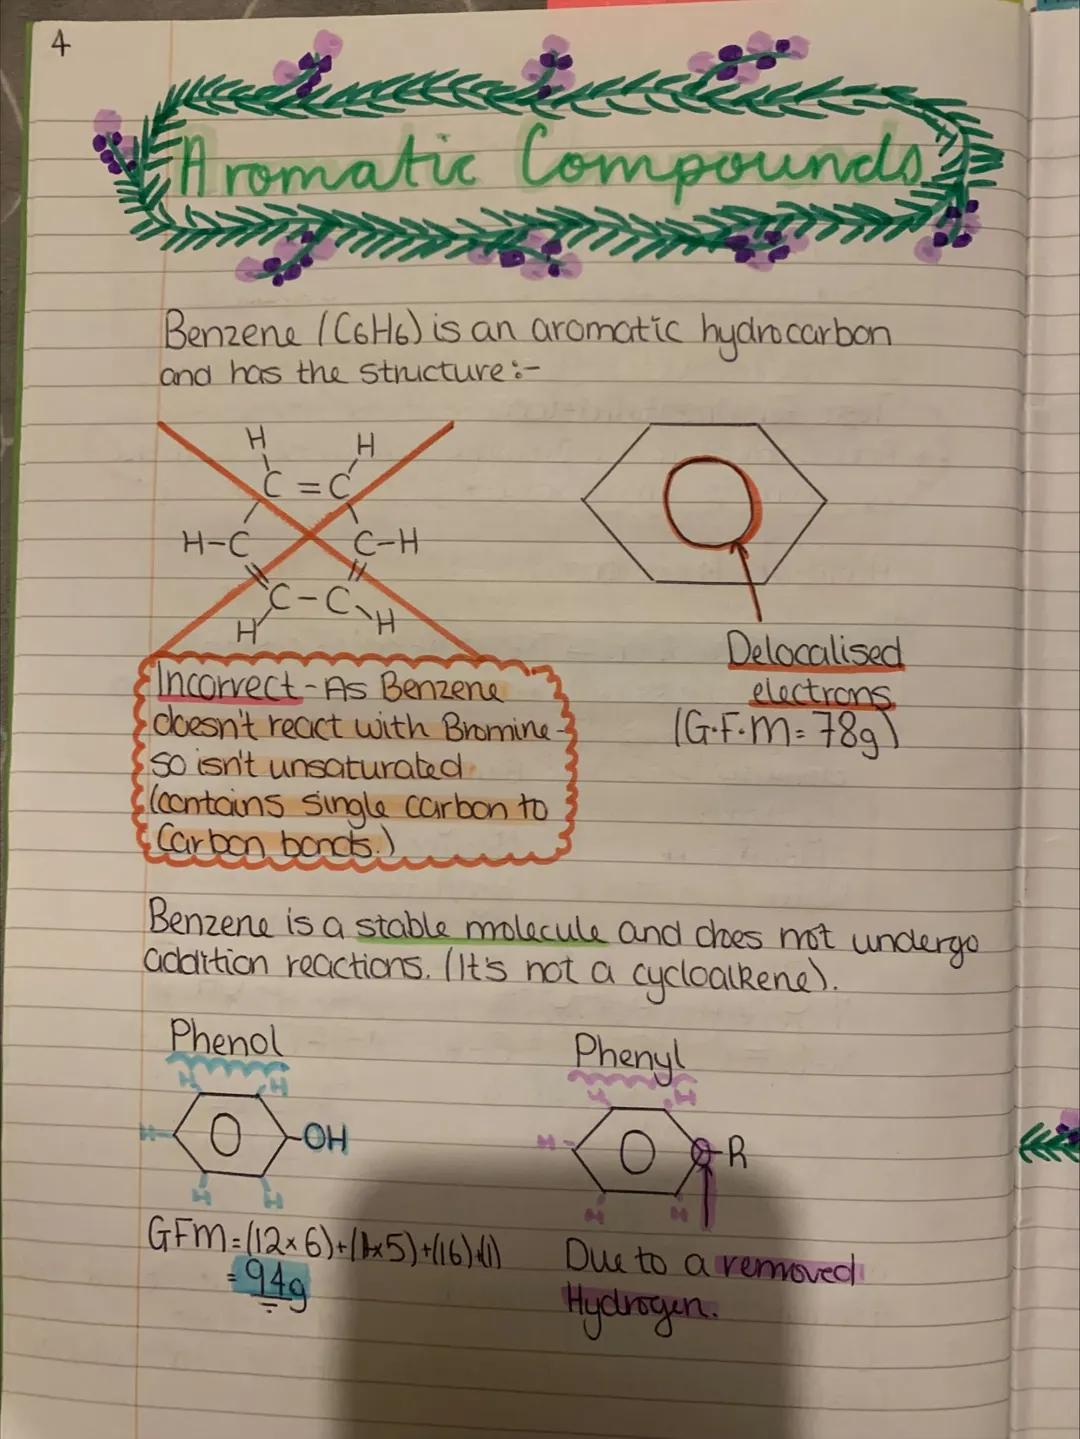 4
Aromatic Compounds
Benzene (C6H6) is an aromatic hydrocarbon
and has the structure:-
H H
C = C
H-C C-H
C-C
H H
Delocalised
electrons
(G.F.M= 78g)
Incorrect - As Benzene
doesn't react with Bromine -
so isn't unsaturated
(contains single carbon to
Carbon bonds.)
Benzene is a stable molecule and does not undergo
addition reactions. (It's not a cycloalkene).
Phenol
H H
H -OH
H H
GFM=(12×6)+(1×5)+(16)+(1)
= 94g
Phenyl
H H
H -R
H H
Due to a removed
Hydrogen.